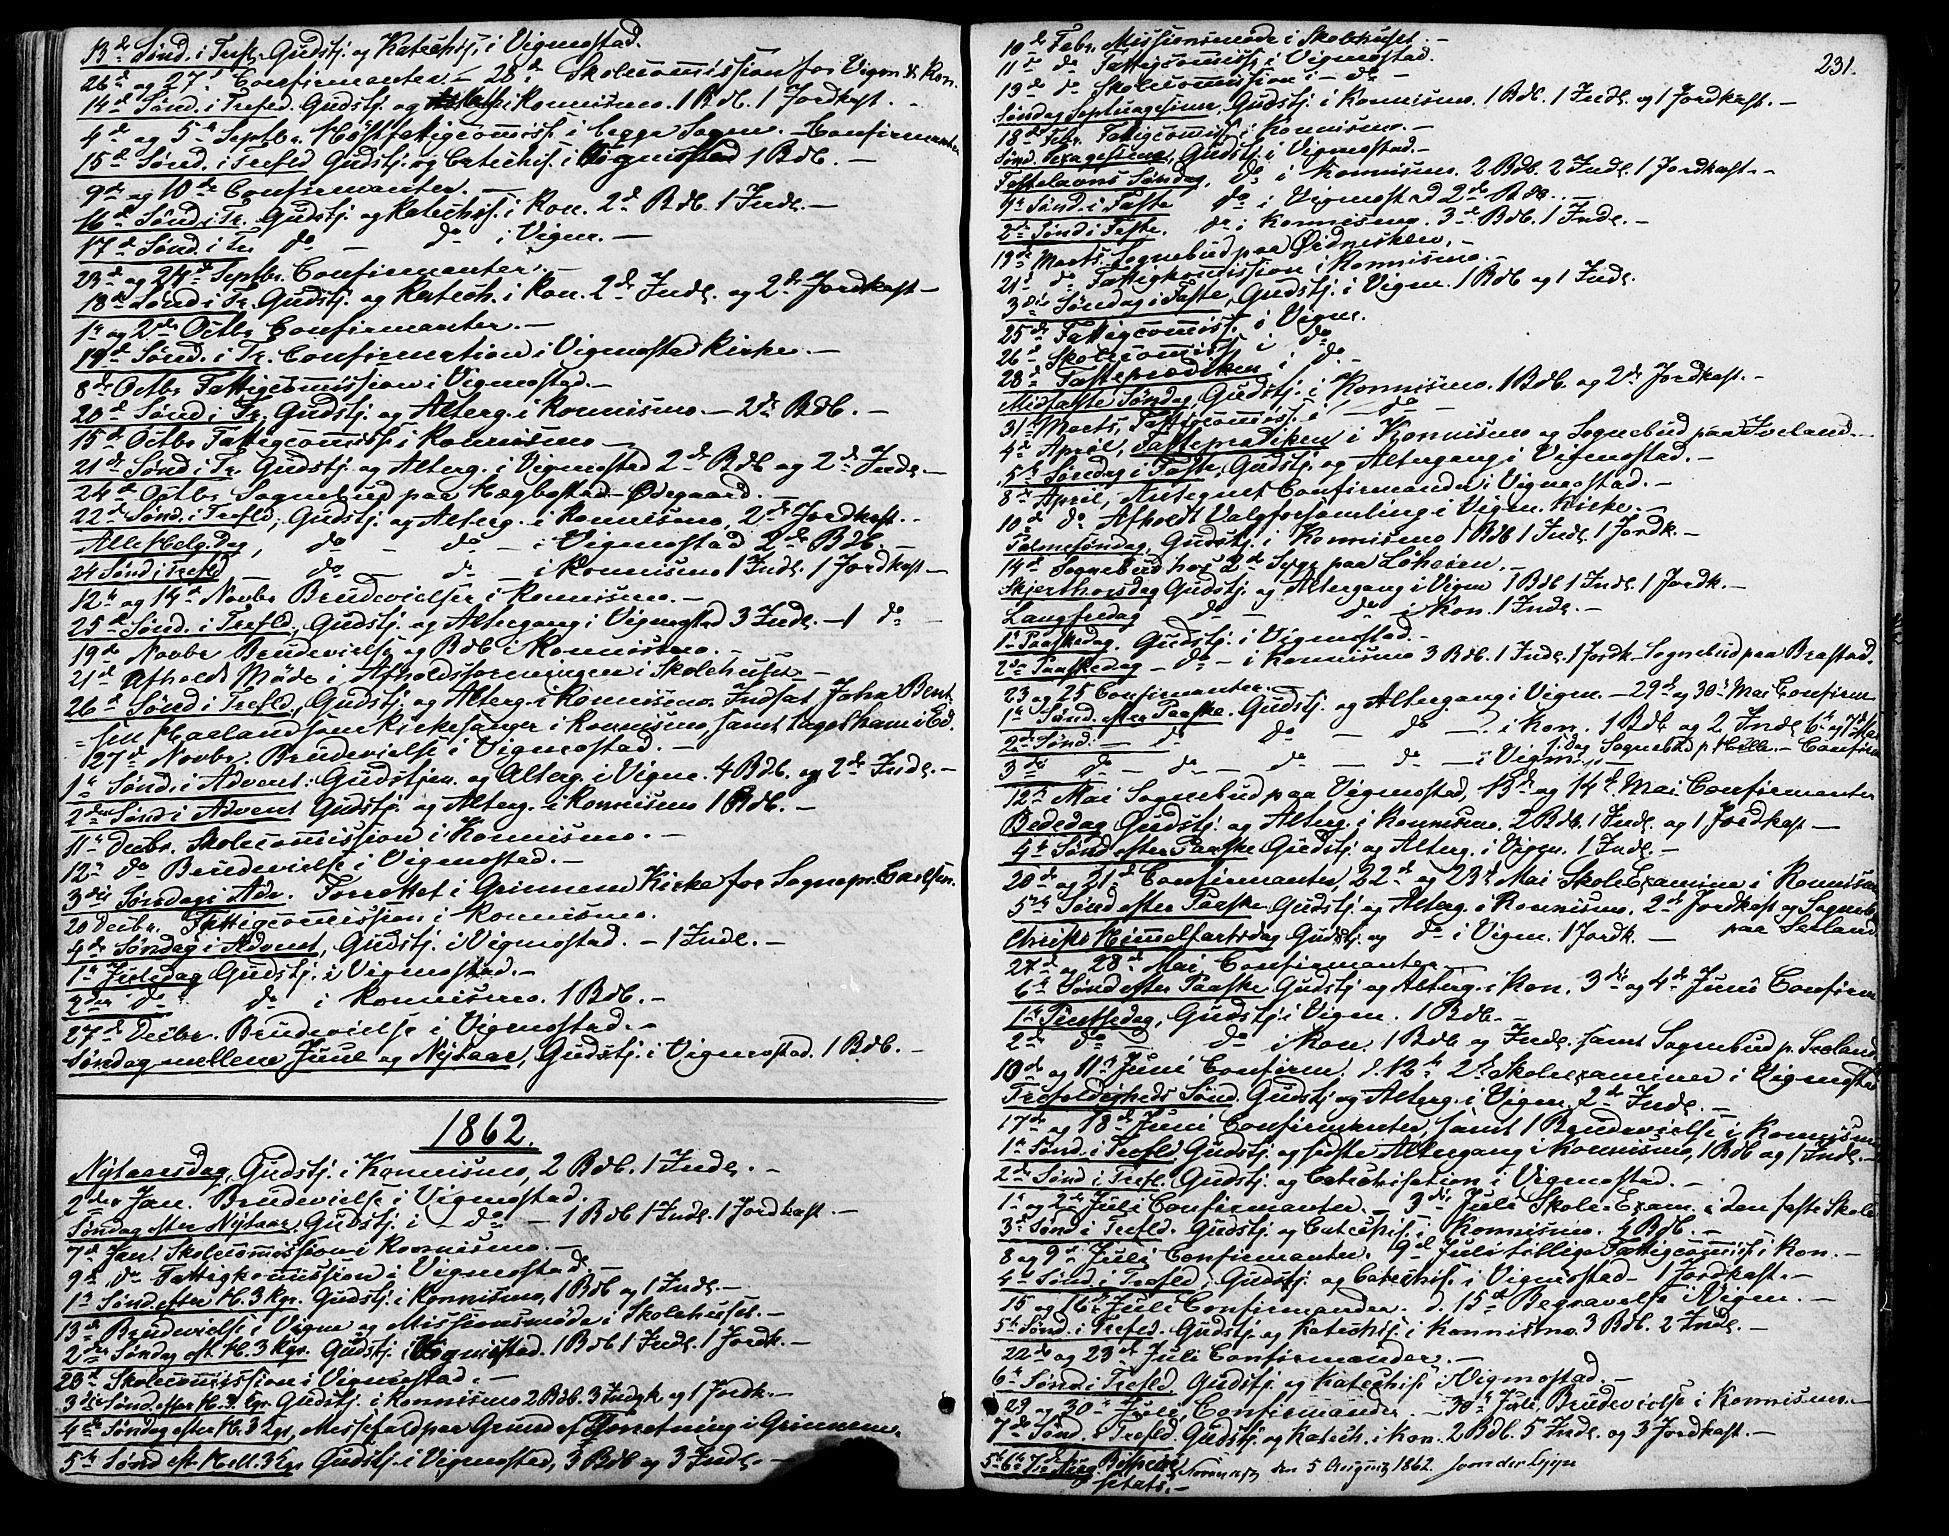 13de Sønd. i Tref. Gudstj. og Katechis. i Vigmostad.
26de og 27de Confirmanter. – 28de Skolecommission for Vigm. & Kon.
14de Sønd. i Trefld. Gudstj. og i Konnismo. 1 Bdb. 1 Jordkast. –
4de og 5te Septbr. Høstfattigcommiss. i begge Sogne. – Confirmanter
15de Sønd. i Trefld. Gudstj. og Catechis. i Vigmostad 1 Bdb. –
9de og 10de Confirmanter. –
16de Sønd. i Tr. Gudstj. og Katechis. i Kon. 2de Bdb. 1 Indl. –
17de Sønd. i Tr. do – do i Vigm. –
23de og 24de Septbr. Confirmanter. –
18de Sønd. i Tr. Gudstj. og Katech. i Kon. 2de Indl. og 2de Jordkast –
1ste og 2den Octbr Confirmanter. –
19de Sønd. i Tr. Confirmation i Vigmostad Kirke. –
8de Octbr Fattigcommission i Vigmostad. –
20de Sønd. i Tr. Gudstj. og Alterg. i Konnismo – 2de Bdb. –
15de Octbr Fattigcommiss. i Konnismo –
21de Sønd. i Tr. Gudstj. og Alterg. i Vigmostad 2de Bdb og 2de Indl. –
24de Octbr Sognebud paa Hægbostad – Ødegaard. –
22de Sønd. i Trefld. Gudstj. og Alterg. i Konnismo, 2de Jordkast. –
Alle Helg. Dag, do – do – i Vigmostad 2de Bdb. –
24 Sønd. i Trefld do – do – i Konnismo 1 Indl. 1 Jordkast –
12te og 14de Novbr Brudevielse i Konnismo. –
25de Sønd. i Trefld., Gudstj. og Altergang i Vigmostad 3 Indl. – 1 do –
19de Novbr Brudevielse og Bdb i Konnismo. –
21de Afholdt Møde i Afholdsforeningen i Skolehuset –
26de Sønd. i Trefld., Gudstj. og Alterg. i Konnismo. Indsat John Bent
=sen Haaland som Kirkesanger i Konnismo, samt taget ham i Ed.
27de Novbr. Brudevielse i Vigmostad. –
1ste Sønd. i Advent. Gudstjen. og Alterg. i Vigm. 4 Bdb. og 2de Indl. –
2den Sønd. i Advent Gudstj. og Alterg. i Konnismo 1 Bdb. –
11te Decbr. Skolecommission i Konnismo. –
12te do Brudevielse i Vigmostad. –
3die Søndag i Adv. Forrettet i Grinnem Kirke for Sognepr. Carlsen.
20 Decbr. Fattigcommission i Konnismo.
4de Søndag i Advent, Gudstj. i Vigmostad. – 1 Indl. –
1ste Juledag Gudstj. i Vigmostad. –
2den do do i Konnismo. 1 Bdb. –
27de Decbr. Brudevielse i Vigmostad. –
Søndag mellem Juul og Nytaar, Gudstj. i Vigmostad. 1 Bdb. –
1862.
Nytaarsdag, Gudstj. i Konnismo, 2 Bdb. 1 Indl. –
2den Jan. Brudevielse i Vigmostad. –
Søndag efter Nytaar Gudstj. i – do – 1 Bdb 1 Indl. 1 Jordkast. –
7de Jan. Skolecommission i Konnismo. –
9de do Fattigkommission i Vigmostad. –
1ste Sønd. efter H. 3 Kgr. Gudstj. i Konnismo, 1 Bdb og 1 Indl. –
13de Brudevielse i Vigm og Missionsmøde i Skolehuset. –
2den Søndag eft. H. 3 Kgr. Gudstj. i Vigmostad. 1 Bdb 1 Indl. 1 Jordk. –
23de Skolecommission i Vigmostad. –
3die Sønd. efter H. 3 Kgr. Gudstj. i Konnismo 2 Bdb. 3 Indl. og 1 Jordk. –
4de Søndag efter H. 3 Kgr. Messefald paa Grund af Forretning i Grinnem.
5te Sønd. eft. Hell. 3 Kgr Gudstj. i Vigmostad, 3 Bdb og 3 Indl. –
231.
10de Febr. Missionsmøde i Skolehuset. –
11te do Fattigcommiss. i Vigmostad.
13de do Skolecommission i – do –
Søndag Septuagesima, Gudstj. i Konnismo. 1 Bdb. 1 Indl. og 1 Jordkast. –
18de Febr. Fattigcommiss. i Konnismo. –
Sønd. Sexagesima, Gudstj. i Vigmostad. –
Fastelavns Søndag, do i Konnismo. 2 Bdb. 2 Indl. 1 Jordkast. –
1ste Sønd. i Faste do i Vigmostad 2de Bdb. –
2den Sønd. i Faste. do i Konnismo. 3de Bdb. 1 Indl. –
19de Marts. Sognebud paa Øidneskleiv. –
21de do Fattigkommission i Konnismo. –
3die Søndag i Faste, Gudstj. i Vigm. 1 Bdb og 1 Indl.
25de Fattigcommiss. i Vigm.
26de Skolecommiss. i do
28de Fasteprædiken i do –
Midfaste Søndag, Gudstj. i Konnismo. 1 Bdb. og 2de Jordkast. –
31te Marts, Fattigcommiss. i – do –
4de April, Fasteprædiken i Konnismo og Sognebud paa Iveland. –
5te Søndag i Faste, Gudstj. og Altergang i Vigmostad. –
8de April, Antegnet Confirmander i Vigmostad. –
10de do Afholdt Valgforsamling i Vigm. Kirke. –
Palmesøndag, Gudstj. i Konnismo 1 Bdb 1 Indl. 1 Jordk. –
14de Sognebud hos 2de Syge paa Løheien. –
Skjerthorsdag Gudstj. og Altergang i Vigm 1 Bdb 1 Indl. 1 Jordk. –
Langfredag do do i Kon. 1 Indl. –
1ste Paaskedag. Gudstj. i Vigmostad. –
2den Paaskedag – do – i Konnismo 3 Bdb. 1 Indl. 1 Jordk. Sognebud paa Brastad.
23 og 25 Confirmanter. –
1ste Sønd. efter Paaske. Gudstj. og Altergang i Vigm. – 29de og 30te Mai Confirm
2den Sønd. – do do – do – i Kon. 1 Bdb og 2 Indl 6te og 7de Mai
3die do – do – do – do – i Vigm. Sognebud p. Hølle. – Confirm
12te Mai Sognebud paa Vigmostad, 13de og 14de Mai Confirmanter
Bededag Gudstj. og Alterg. i Konnismo, 2 Bdb. 1 Indl. og 1 Jordkast –
4de Sønd. efter Paaske Gudstj. og Alterg. i Vigm. 1 Indl. –
20de og 21de Confirmanter, 22de og 23de Mai Skole-Examina i Konnismo
5te Sønd. efter Paaske Gudstj. og Alterg. i Konnismo. 2de Jordkast og Sogneb.
Christi Himmelfartsdag Gudstj. og do i Vigm. 1 Jordk. – paa Seland
27de og 28de Mai, Confirmanter –
6te Sønd. efter Paaske Gudstj. og Alterg. i Kon. 3die og 4de Juni Confirm
1ste Pintsedag, Gudstj. i Vigm. 1 Bdb. –
2den do do i Kon. 1 Bdb og Indl. samt Sognebud p. Seeland
10de og 11te Juni Confirm. d. 12te 2de Skoleexaminer i Vigmostad
Trefoldigheds Sønd. Gudstj. og Alterg. i Vigm. 2de Indl. –
17de og 18de Juni Confirmanter, samt 1 Brudevielse i Konnismo
1ste Sønd. i Trefld Gudstj. og sidste Altergang i Konnismo, 1 Bdb og 1 Indl. –
2den Sønd. i Trefl. Gudstj. og Catechisation i Vigmostad. –
1ste og 2den Juli Confirmanter. – 3die Juli Skole-Exam. i den faste Skole
3die Sønd. i Trefld. Gudstj. og Catechis. i Konnismo. 4 Bdb. –
8 og 9de Juli Confirmanter. 9de Juli tillige Fattigcommiss. i Kon. –
4de Sønd. i Trefld. Gudstj. og Catechis. i Vigmostad – 1 Jordkast. –
15 og 16de Juli Confirmander. d. 15de Begravelse i Vigm. –
5te Sønd. i Trefld. Gudstj. og Katechis. i Konnismo 3 Bdb. 2 Indl. –
22de og 23de Juli Confirmander, –
6te Sønd. i Trefld Gudstj. og Katechis. i Vigmostad. –
29 og 30te Juli, Confirmander. – 30te Juli, Brudevielse i Konnismo. –
7de Sønd. i Trefld. Gudstj. og Katech. i Kon. 2 Bdb. 5 Indl. og 3 Jordkast. –
5te 6te 7de Aug. Bispe
Visitats. – den 5 August 1862.